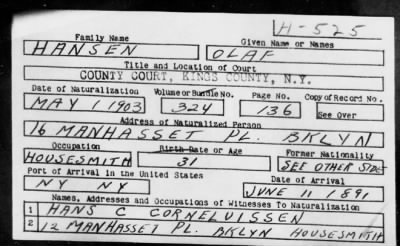 H-525
Family Name Given Name or Names
HANSEN OLAF
Title and Location of Court
COUNTY COURT, KINGS COUNTY, N.Y.
Date of Naturalization Volume or Bundle No. Page No. Copy of Record No.
MAY 1 1903 324 136 See Over
Address of Naturalized Person
16 MANHASSET PL. BKLYN
Occupation Birth Date or Age Former Nationality
HOUSESMITH 31 SEE OTHER SIDE
Port of Arrival in the United States Date of Arrival
NY NY JUNE 11 1891
Names, Addresses and Occupations of Witnesses To Naturalization
1 HANS C CORNELUISSEN
2 12 MANHASSET PL. BKLYN HOUSESMITH